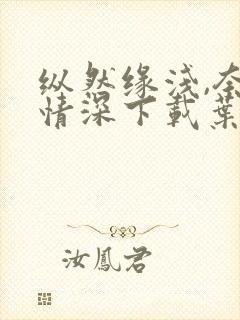 纵然缘浅,奈
情深下載葉
汝鳳君